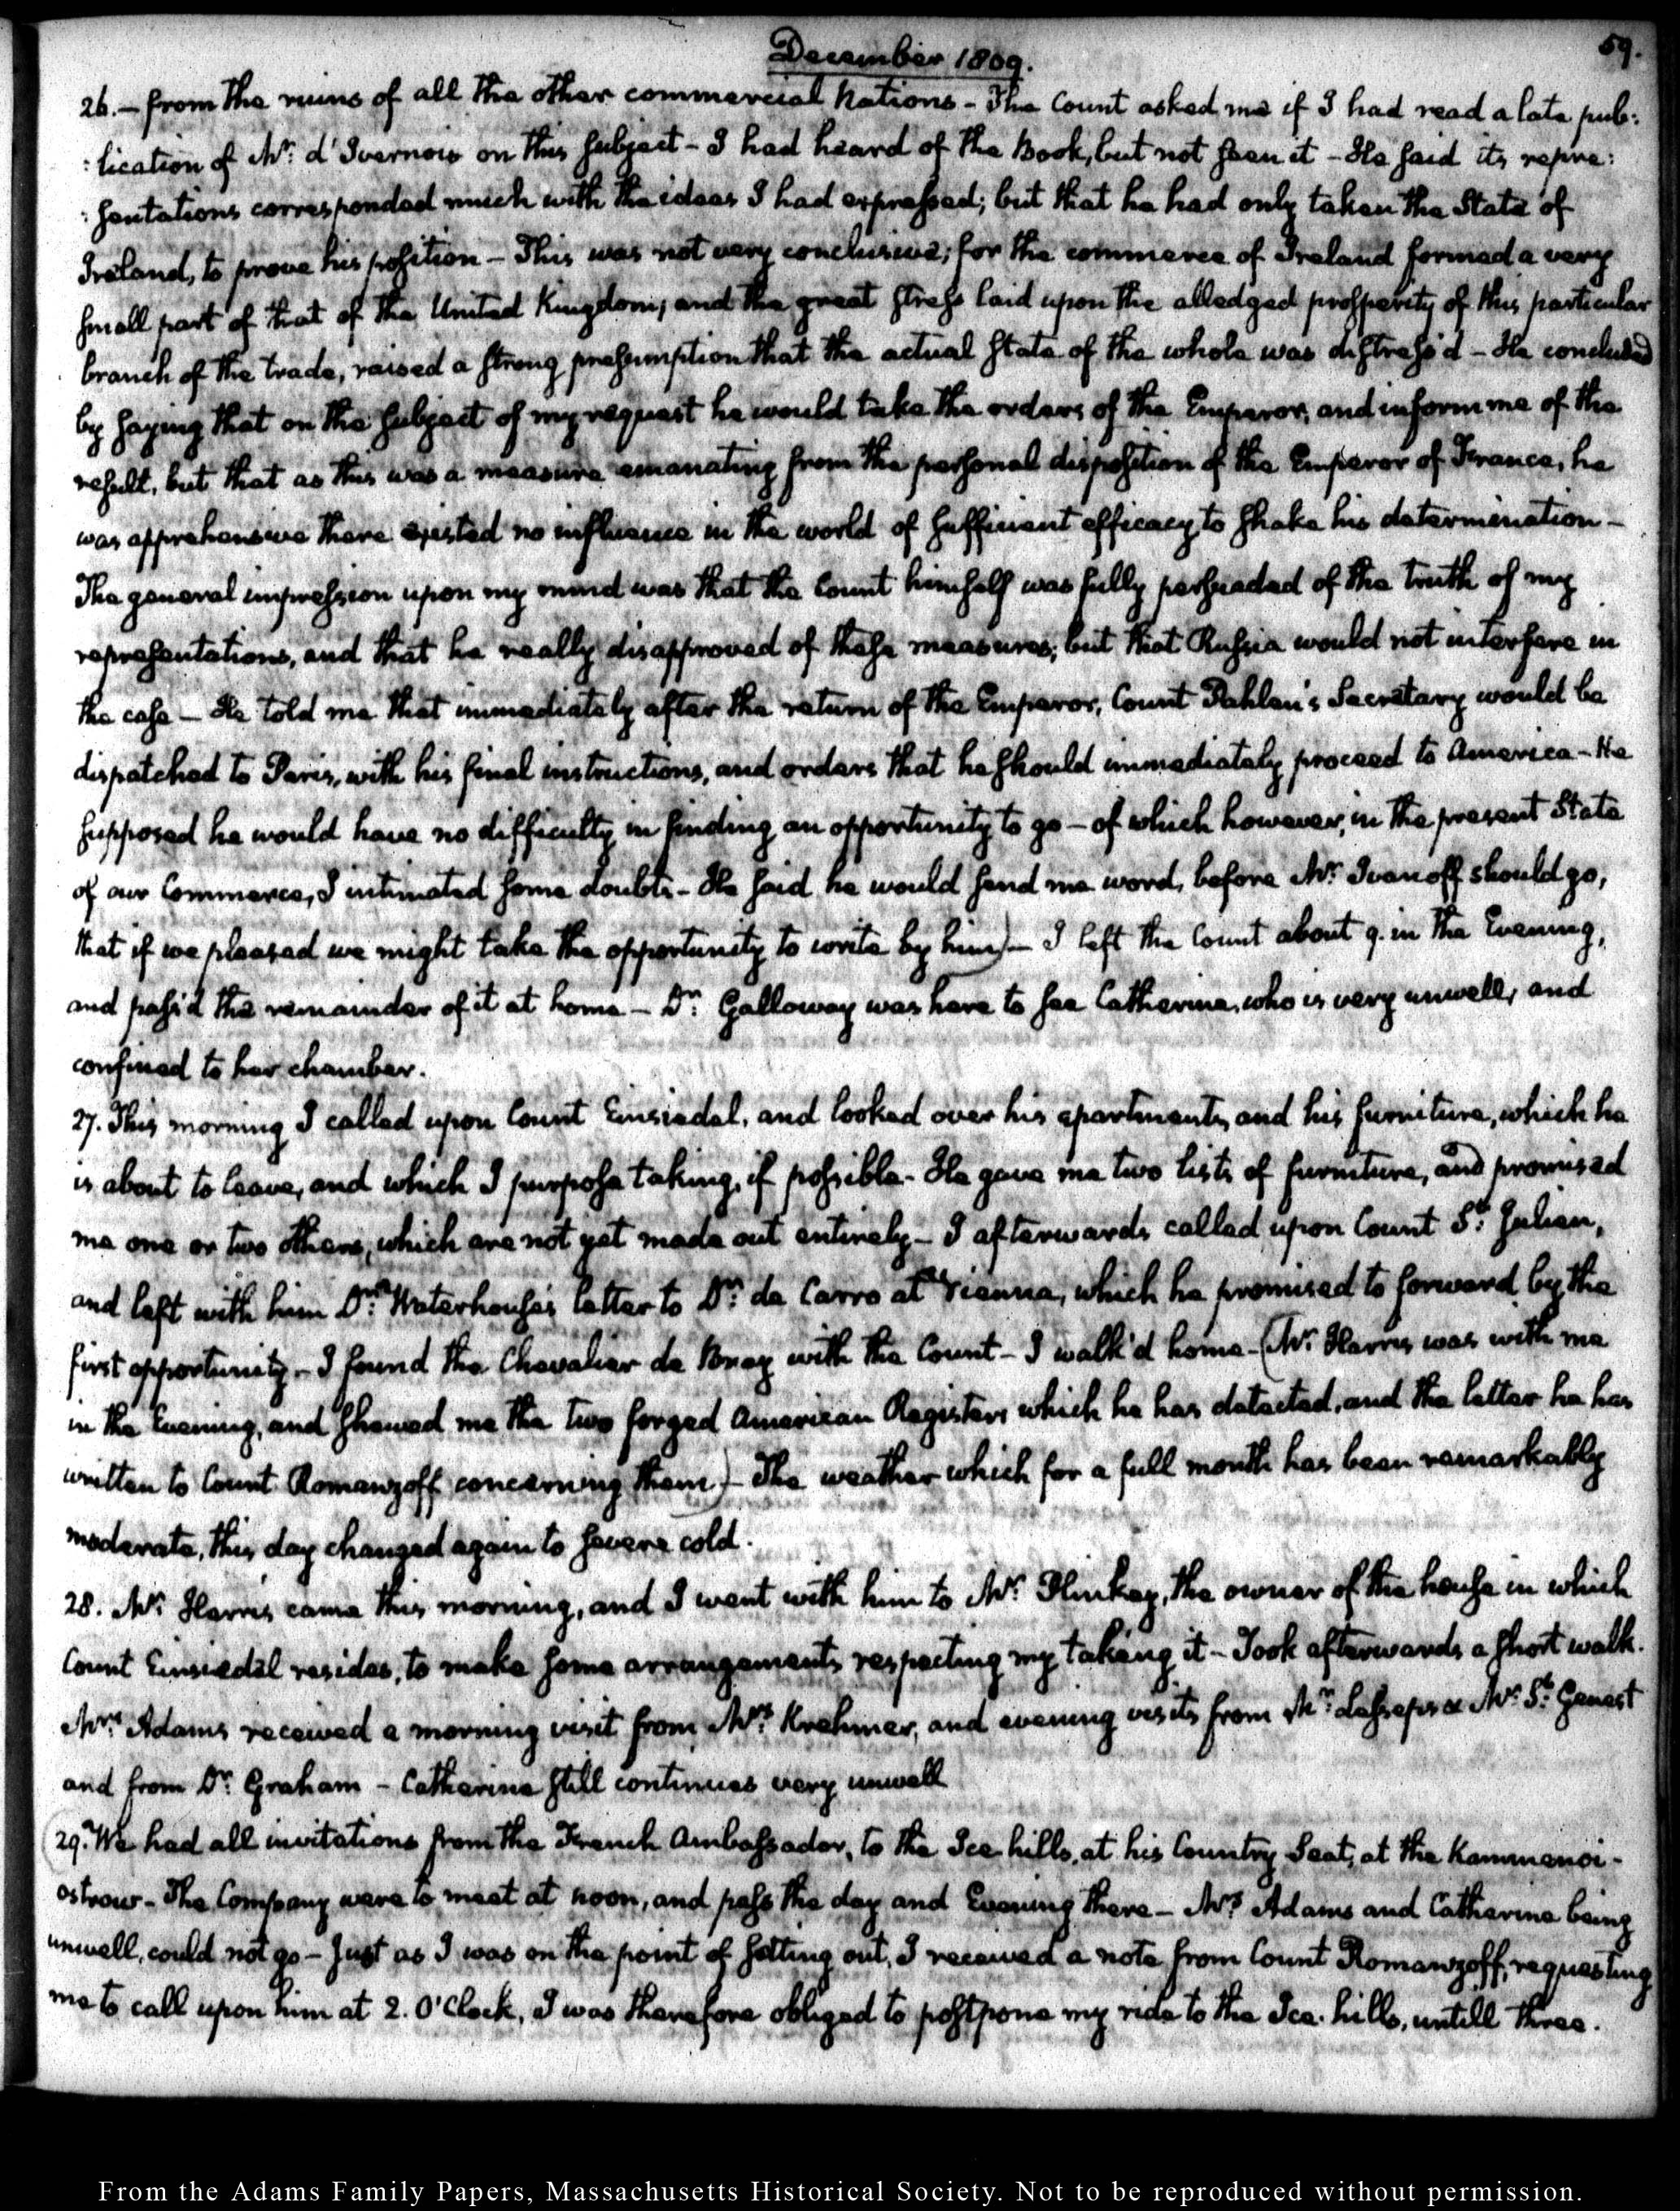 December 1809.
59.
26. — from the ruins of all the other commercial Nations — The Count asked me if I had read a late pub:
:lication of Mr: d'Ivernois on this subject — I had heard of the Book, but not seen it — He said its repre:
:sentations corresponded much with the ideas I had expressed; but that he had only taken the State of
Ireland, to prove his position — This was not very conclusive; for the commerce of Ireland formed a very
small part of that of the United Kingdom; and the great stress laid upon the alledged prosperity of this particular
branch of the trade, raised a strong presumption that the actual state of the whole was distress'd — He concluded
by saying that on the subject of my request he would take the orders of the Emperor, and inform me of the
result, but that as this was a measure emanating from the personal disposition of the Emperor of France, he
was apprehensive there existed no influence in the world of sufficient efficacy to shake his determination —
The general impression upon my mind was that the Count himself was fully persuaded of the truth of my
representations, and that he really disapproved of these measures; but that Russia would not interfere in
the case — He told me that immediately after the return of the Emperor, Count Pahlen's Secretary would be
dispatched to Paris, with his final instructions, and orders that he should immediately proceed to America — He
supposed he would have no difficulty in finding an opportunity to go — of which however, in the present State
of our Commerce, I intimated some doubts — He said he would send me word, before Mr: Ivanoff should go,
that if we pleased we might take the opportunity to write by him) — I left the Count about 9. in the Evening,
and pass'd the remainder of it at home — Dr: Galloway was here to see Catherine, who is very unwell, and
confined to her chamber.
27. This morning I called upon Count Einsiedel, and looked over his apartments, and his furniture, which he
is about to leave, and which I purpose taking, if possible — He gave me two lists of furniture, and promised
me one or two others, which are not yet made out entirely — I afterwards called upon Count St: Julien,
and left with him Dr: Waterhouse's letter to Dr: de Carro at Vienna, which he promised to forward by the
first opportunity — I found the Chevalier de Bray with the Count — I walk'd home — (Mr: Harris was with me
in the Evening, and shewed me the two forged American Registers which he has detected, and the letter he has
written to Count Romanzoff concerning them.) — The weather which for a full month has been remarkably
moderate, this day changed again to severe cold.
28. Mr: Harris came this morning, and I went with him to Mr: Plinkey, the owner of the house in which
Count Einsiedel resides, to make some arrangements respecting my taking it — Took afterwards a short walk.
Mrs: Adams received a morning visit from Mrs: Krehmer, and evening visits from Mr: Lesseps & Mr: St: Genest
and from Dr: Graham — Catherine still continues very unwell
29. We had all invitations from the French Ambassador, to the Ice hills, at his Country Seat, at the Kammenoi-
ostrow — The Company were to meet at noon, and pass the day and Evening there — Mrs: Adams and Catherine being
unwell, could not go — Just as I was on the point of setting out, I received a note from Count Romanzoff, requesting
me to call upon him at 2. O'Clock, I was therefore obliged to postpone my ride to the Ice-hills, untill three.
From the Adams Family Papers, Massachusetts Historical Society. Not to be reproduced without permission.